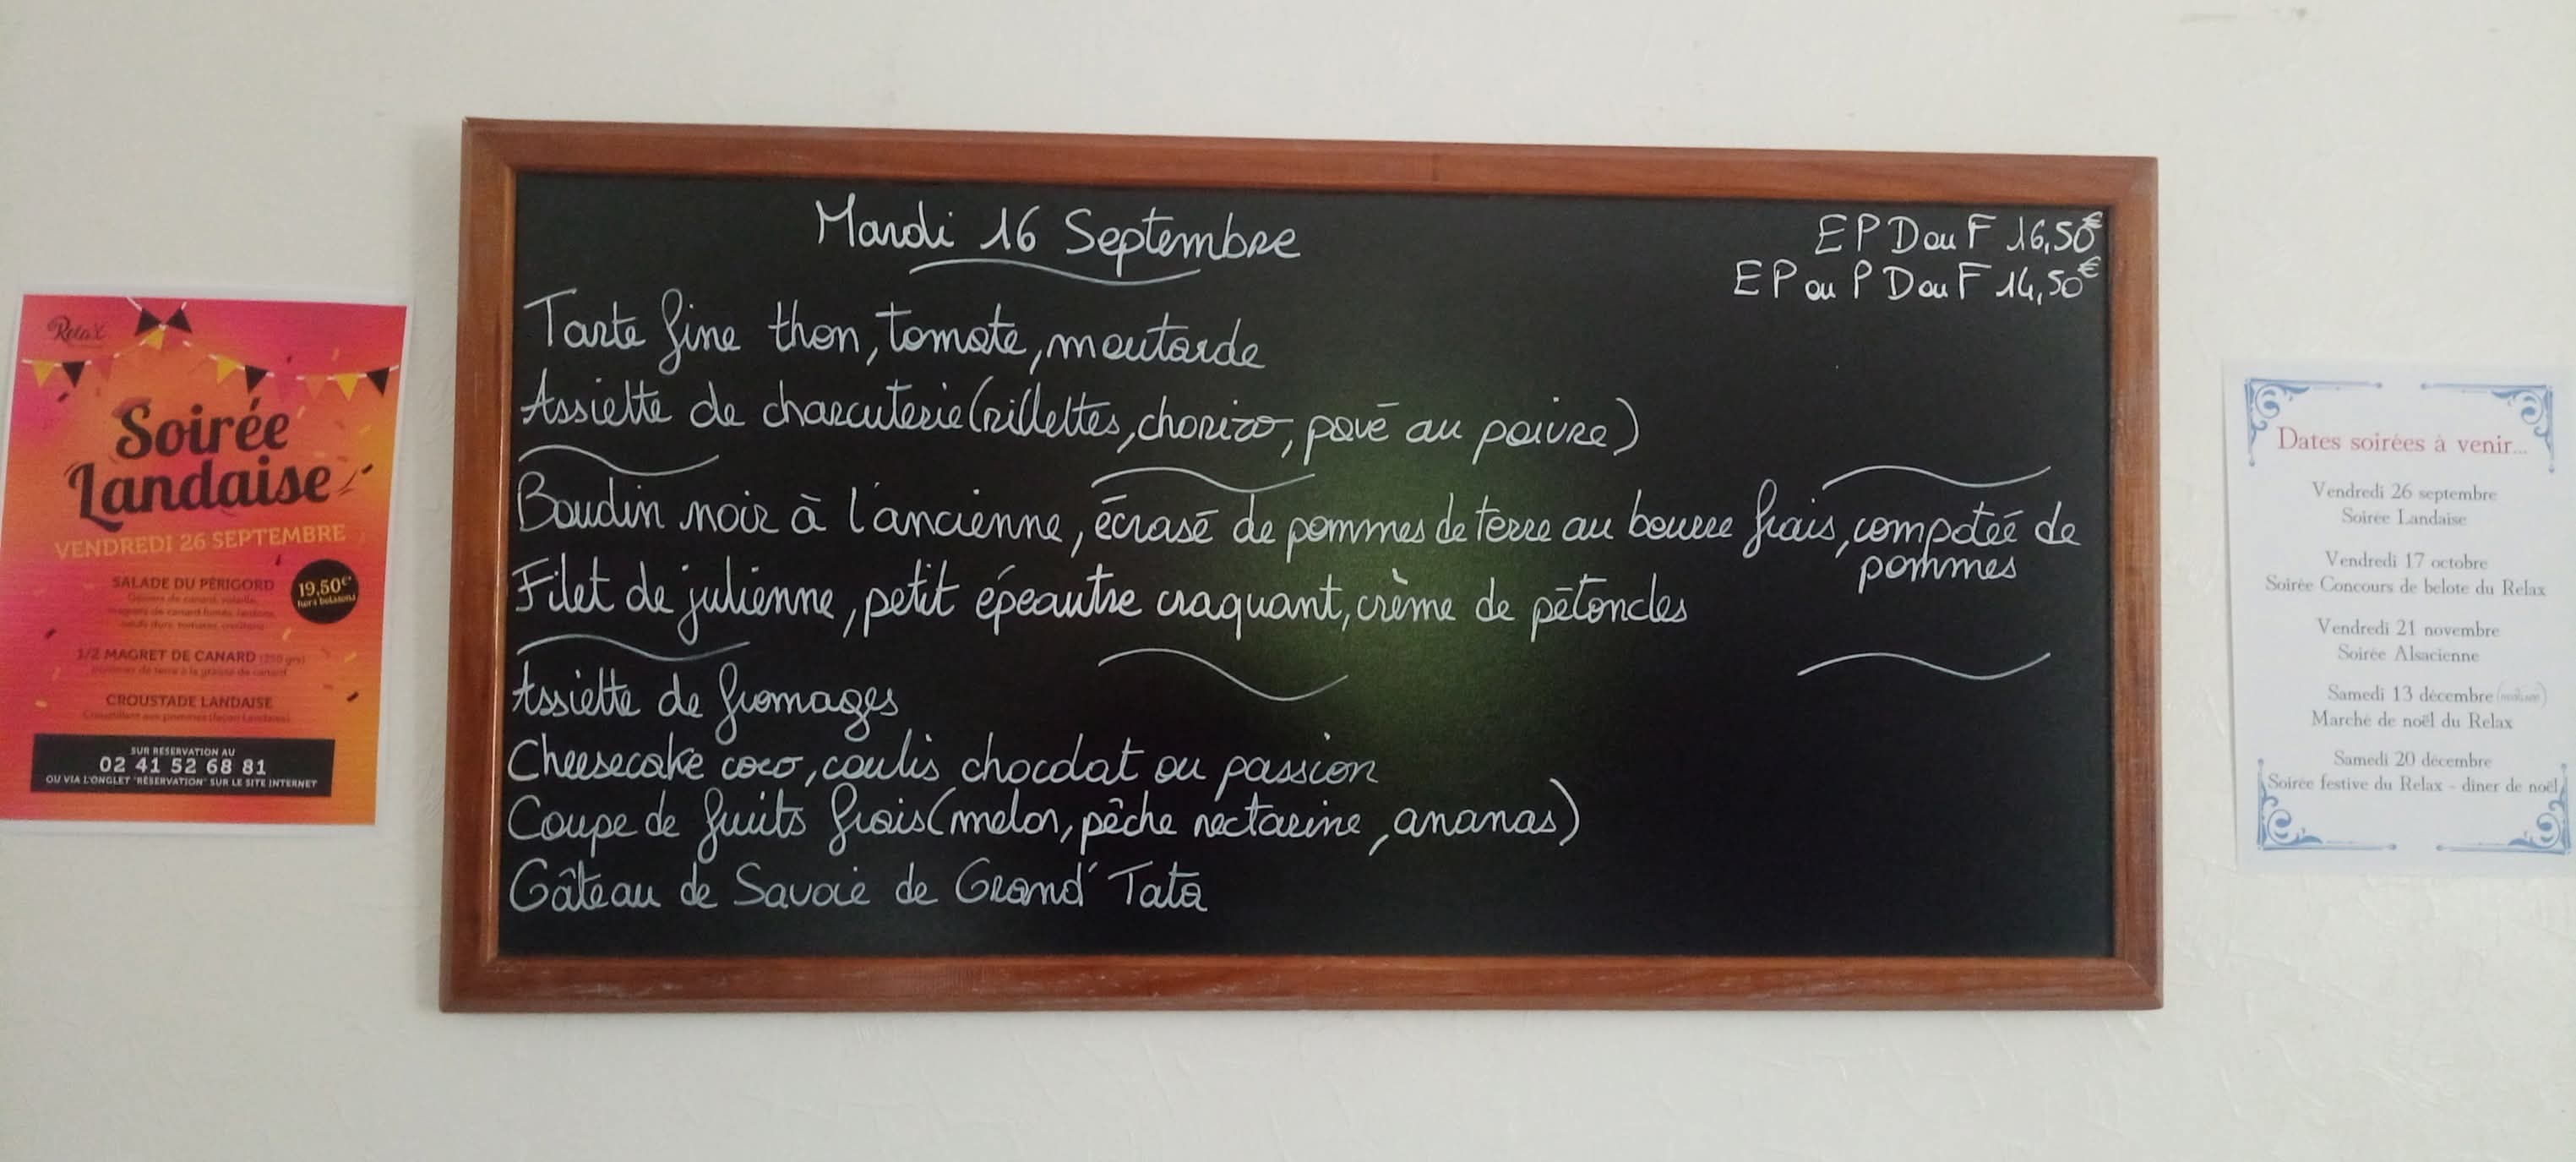 Mardi 16 Septembre
E P D ou F 16,50€
E P ou P D ou F 14,50€
Tarte fine thon, tomate, moutarde
Assiette de charcuterie (rillettes, chorizo, pavé au poivre)
Boudin noir à l'ancienne, écrasé de pommes de terre au beurre frais, compotée de
pommes
Filet de julienne, petit épeautre craquant, crème de pétoncles
Assiette de fromages
Cheesecake coco, coulis chocolat ou passion
Coupe de fruits frais (melon, pêche nectarine, ananas)
Gâteau de Savoie de Grand' Tata
Relax
Soirée
Landaise
VENDREDI 26 SEPTEMBRE
SALADE DU PÉRIGORD
19,50€
hors boissons
1/2 MAGRET DE CANARD
CROUSTADE LANDAISE
SUR RÉSERVATION AU
02 41 52 68 81
OU VIA L'ONGLET "RÉSERVATION" SUR LE SITE INTERNET
Dates soirées à venir...
Vendredi 26 septembre
Soirée Landaise
Vendredi 17 octobre
Soirée Concours de belote du Relax
Vendredi 21 novembre
Soirée Alsacienne
Samedi 13 décembre
Marché de noël du Relax
Samedi 20 décembre
Soirée festive du Relax - dîner de noël